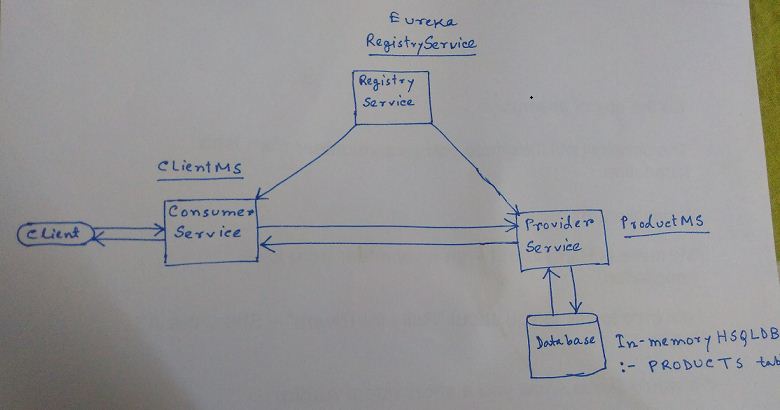 Eureka
RegistryService
Registry
Service
CLientMS
Consumer
Service
CLient
Provider
Service
ProductMS
Database
In-memory HSQLDB
:- PRODUCTS tab